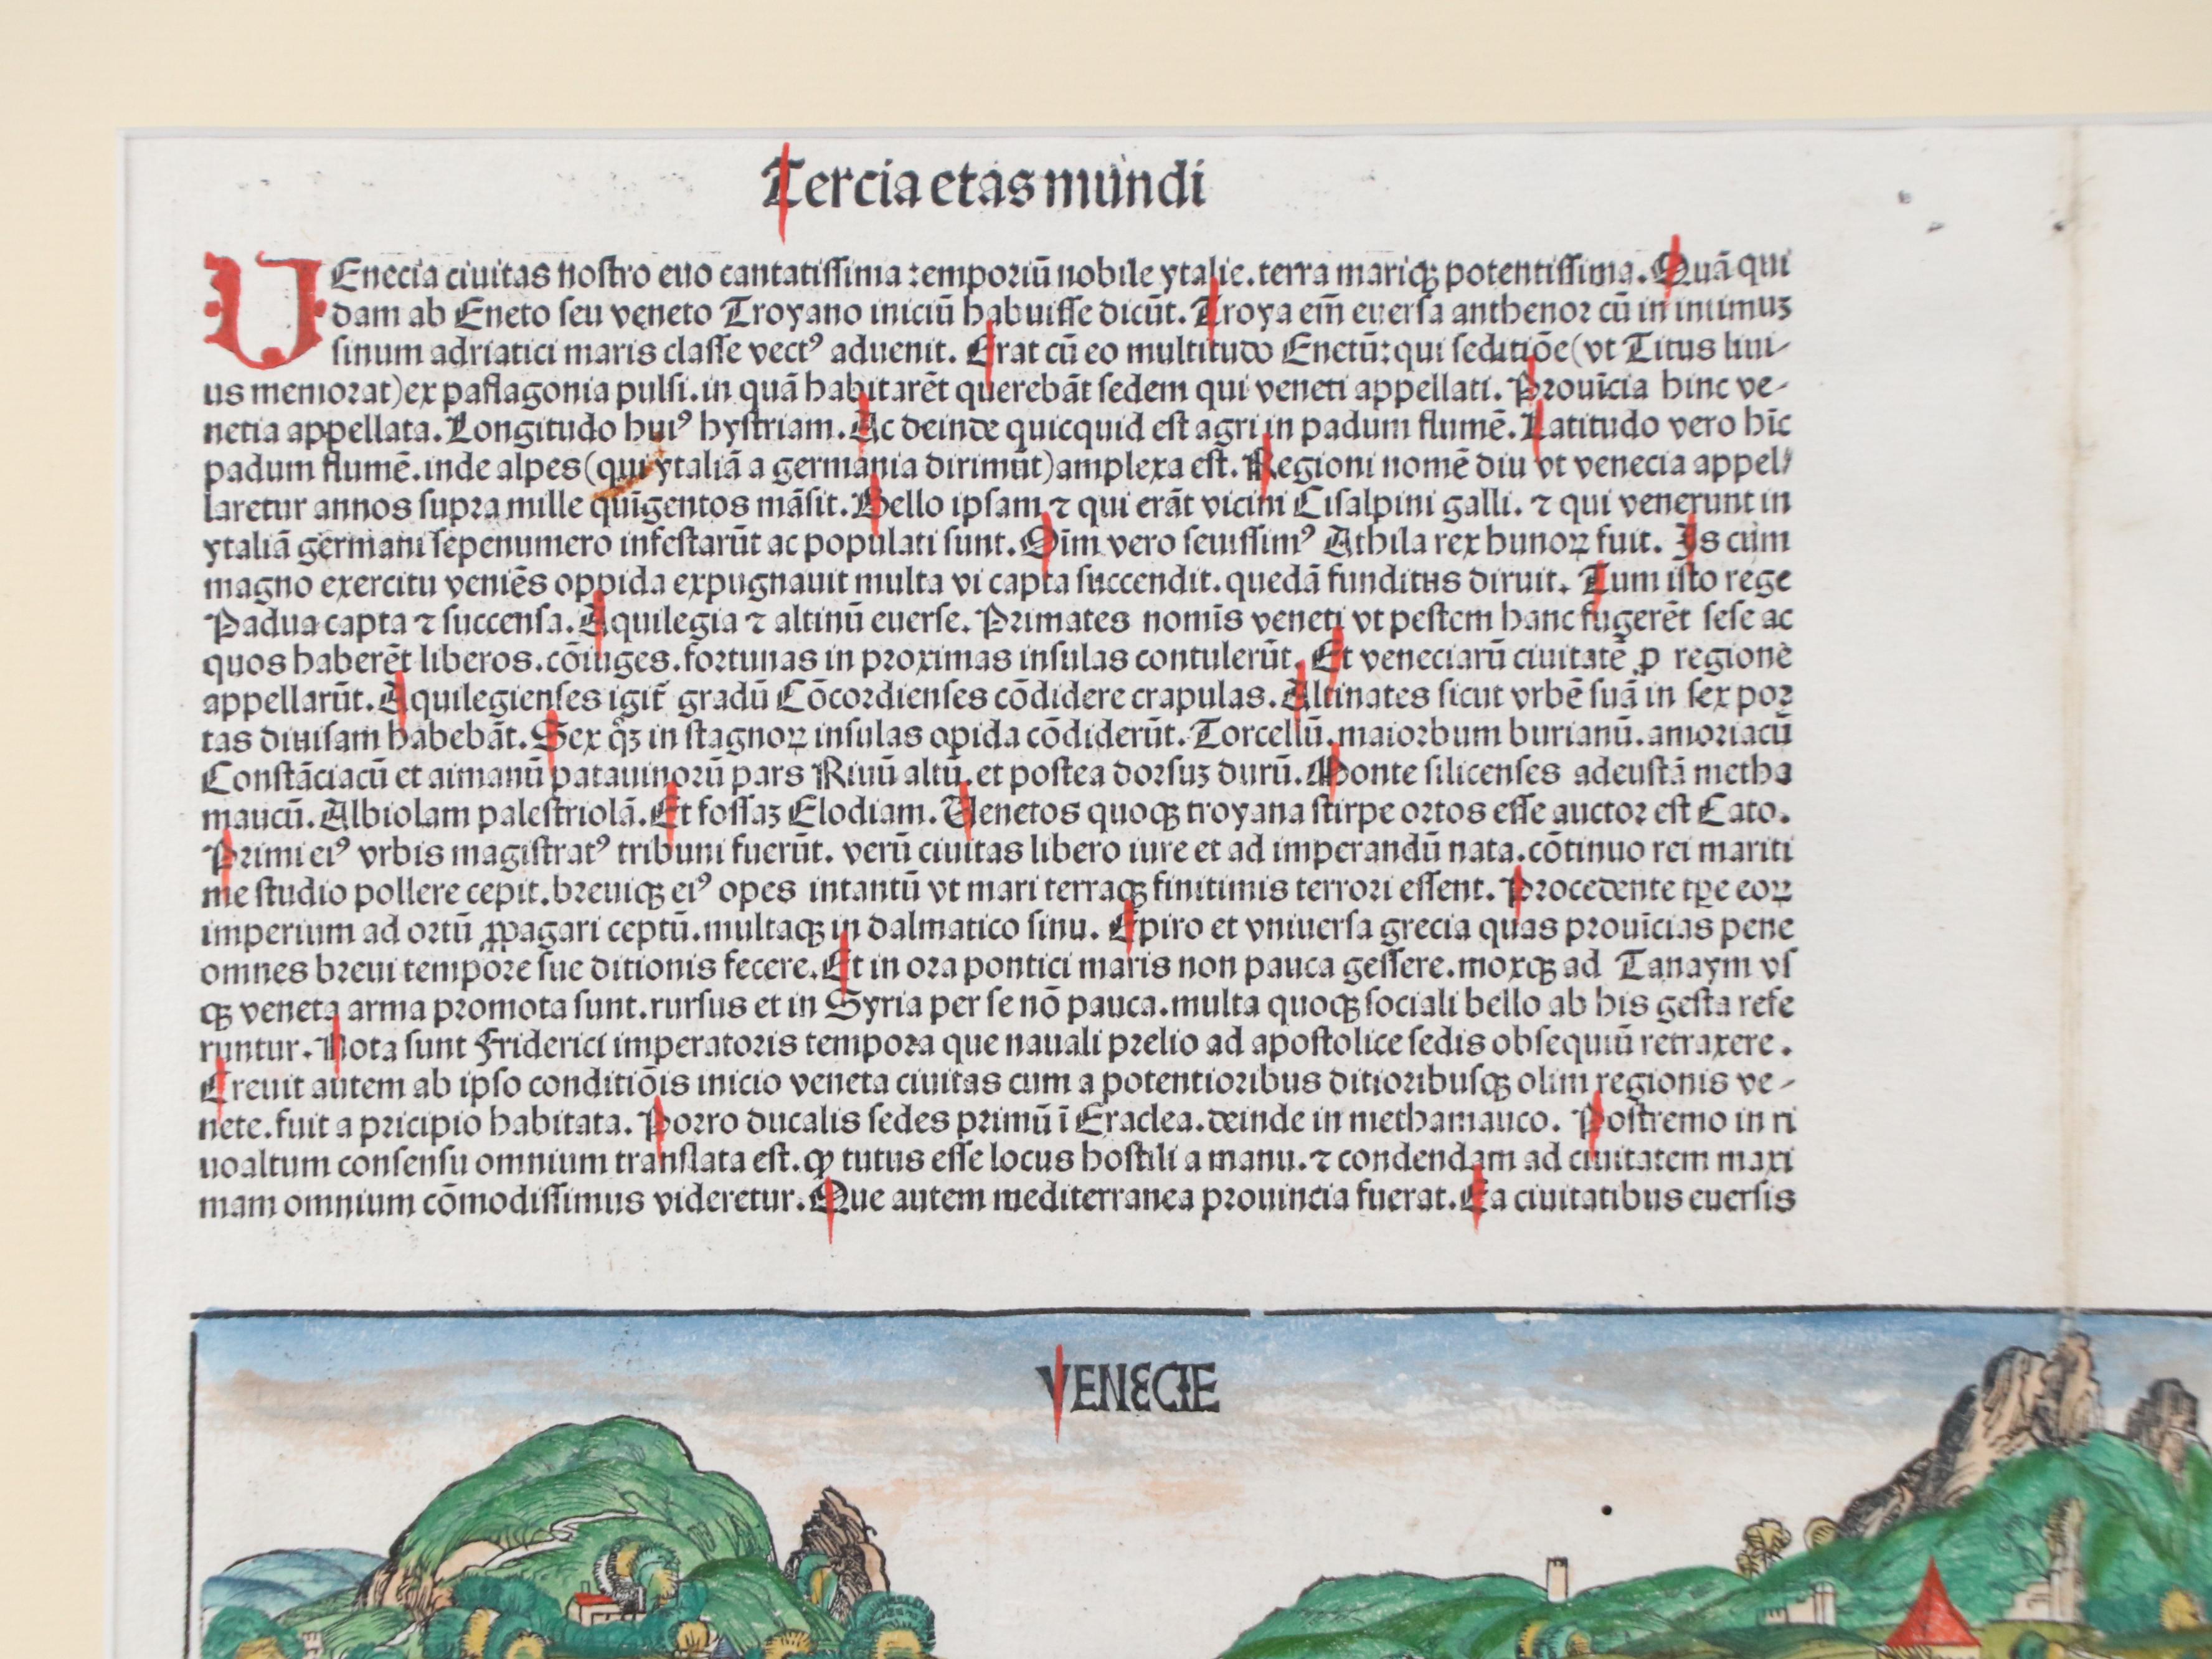 Tercia etas mundi
UEnecia ciuitas nostro euo cantatissima:emporiū nobile ytalie.terra mariqꝫ potentissima.Quā qui
dam ab Eneto seu veneto Troyano iniciū habuisse dicūt.Troya eīn euersa anthenor cū in intimuꝫ
sinum adriatici maris classe vectꝰ aduenit. Erat cū eo multitudo Enetū:qui seditiōe(vt Titus liui-
us memorat)ex paflagonia pulsi.in quā habitarēt querebāt sedem qui veneti appellati. Prouīcia hinc ve-
netia appellata.Longitudo huiꝰ hystriam.Ac deinde quicquid est agri in padum flumē.Latitudo vero hīc
padum flumē.inde alpes(qui ytaliā a germania dirimūt)amplexa est.Regioni nomē diu vt venecia appel-
laretur annos supra mille quīgentos māsit.Bello ipsam ⁊ qui erāt vicini Cisalpini galli. ⁊ qui venerunt in
ytaliā germani sepenumero infestarūt ac populati sunt.Oīm vero seuissimꝰ Athila rex hunoꝝ fuit. Is cum
magno exercitu veniēs oppida expugnauit multa vi capta succendit.quedā funditus diruit. Tum isto rege
Padua capta ⁊ succensa.Aquilegia ⁊ altinū euerse.Primates nomīs veneti vt pestem hanc fugerēt sese ac
quos haberēt liberos.cōiuges.fortunas in proximas insulas contulerūt. Et veneciarū ciuitatē ꝓ regione
appellarūt.Aquilegienses igit̄ gradū Cōcordienses cōdidere crapulas.Altinates sicut vrbē suā in sex por
tas diuisam habebāt.Sex qͦꝫ in stagnoꝝ insulas opida cōdiderūt.Torcellū.maiorbum burianū.amoriacū
Constāciacū et aimanū patauinorū pars Riuū altū.et postea dorsuꝫ durū.Monte silicenses adeustā metha
maucū.Albiolam palestriolā.Et fossaꝫ Clodiam.Venetos quoqꝫ troyana stirpe ortos esse auctor est Cato.
Primi eiꝰ vrbis magistratꝰ tribuni fuerūt. verū ciuitas libero iure et ad imperandū nata.cōtinuo rei mariti
me studio pollere cepit.breuiqꝫ eiꝰ opes intantū vt mari terraqꝫ finitimis terrori essent. Procedente tꝑe eoꝝ
imperium ad ortū ꝓpagari ceptū.multaqꝫ in dalmatico sinu. Epiro et vniuersa grecia quas prouīcias pene
omnes breui tempore sue ditionis fecere.Et in ora pontici maris non pauca gessere.moxqꝫ ad Tanaym vs
qꝫ veneta arma promota sunt.rursus et in Syria per se nō pauca.multa quoqꝫ sociali bello ab his gesta refe
runtur.Nota sunt Friderici imperatoris tempora que nauali prelio ad apostolice sedis obsequiū retraxere.
Creuit autem ab ipso conditiōis inicio veneta ciuitas cum a potentioribus ditioribusqꝫ olim regionis ve-
nete.fuit a pricipio habitata.Porro ducalis sedes primū ī Eraclea.deinde in methamauco. Postremo in ri
uoaltum consensu omnium translata est.ꝙ tutus esse locus hostili a manu.⁊ condendam ad ciuitatem maxi
mam omnium cōmodissimus videretur.Que autem mediterranea prouincia fuerat.Ea ciuitatibus euersis
VENECIE